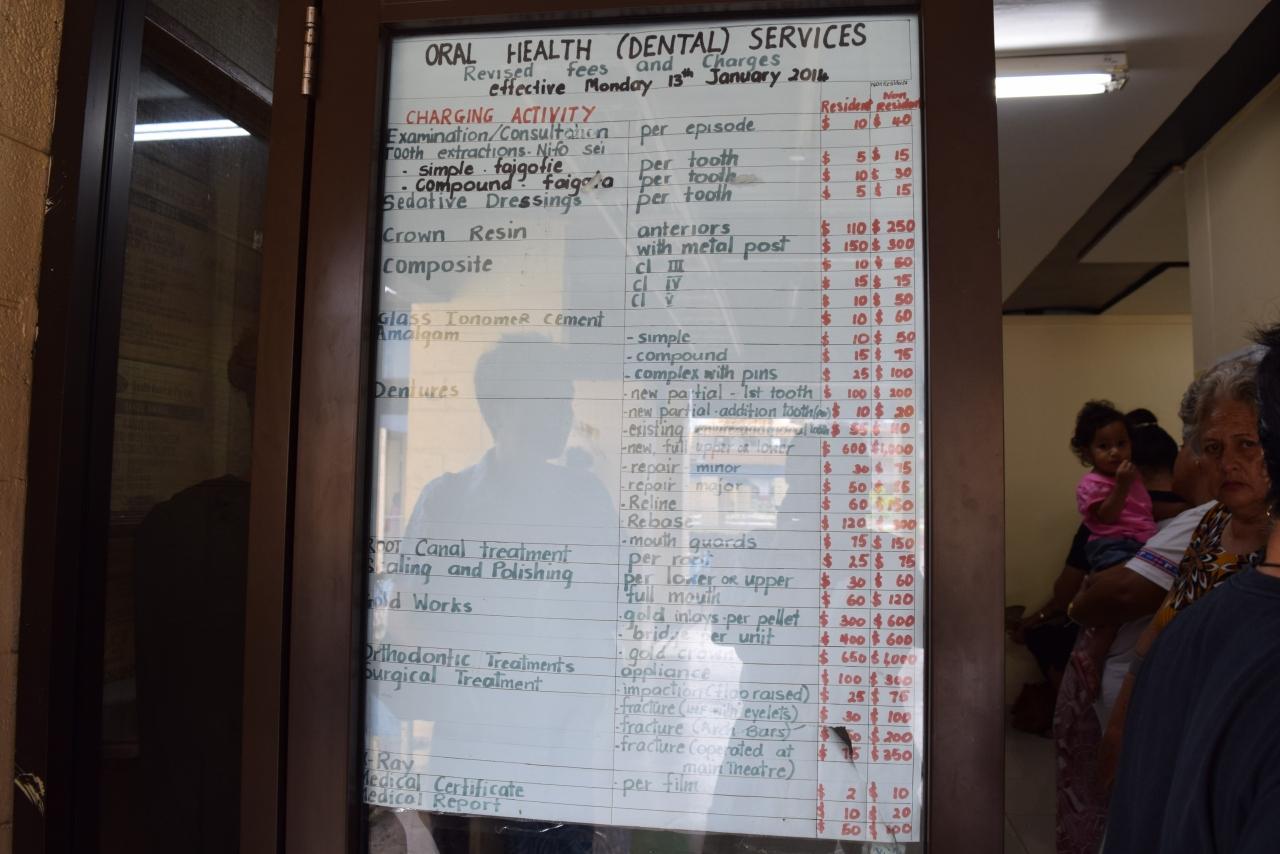 ORAL HEALTH (DENTAL) SERVICES
Revised fees and Charges
effective Monday 13th January 2014
CHARGING ACTIVITY Resident Non Resident
Examination/Consultation per episode $ 10 $ 40
Tooth extractions. Nifo sei
- simple. faigofie per tooth $ 5 $ 15
- compound. faigata per tooth $ 10 $ 30
Sedative Dressings per tooth $ 5 $ 15
Crown Resin anteriors $ 110 $ 250
with metal post $ 150 $ 300
Composite cl III $ 10 $ 50
cl IV $ 15 $ 75
cl V $ 10 $ 50
Glass Ionomer cement $ 10 $ 60
Amalgam - simple $ 10 $ 50
- compound $ 15 $ 75
- complex with pins $ 25 $ 100
Dentures - new partial - 1st tooth $ 100 $ 200
- new partial - addition tooth $ 10 $ 20
- existing $ 55 $ 110
- new, full upper or lower $ 600 $1,000
- repair - minor $ 30 $ 75
- repair - major $ 50 $ 75
- Reline $ 60 $ 150
- Rebase $ 120 $ 300
- mouth guards $ 75 $ 150
Root Canal treatment per root $ 25 $ 75
Scaling and Polishing per lower or upper $ 30 $ 60
full mouth $ 60 $ 120
Gold Works - gold inlays - per pellet $ 300 $ 600
- bridge per unit $ 400 $ 600
- gold crown $ 650 $1,000
Orthodontic Treatments appliance $ 100 $ 300
Surgical Treatment - impaction (flap raised) $ 25 $ 75
- fracture (with eyelets) $ 30 $ 100
- fracture (Arch Bars) $ $ 200
- fracture (operated at main Theatre) $ 75 $ 350
X-Ray - per film $ 2 $ 10
Medical Certificate $ 10 $ 20
Medical Report $ 50 $ 100